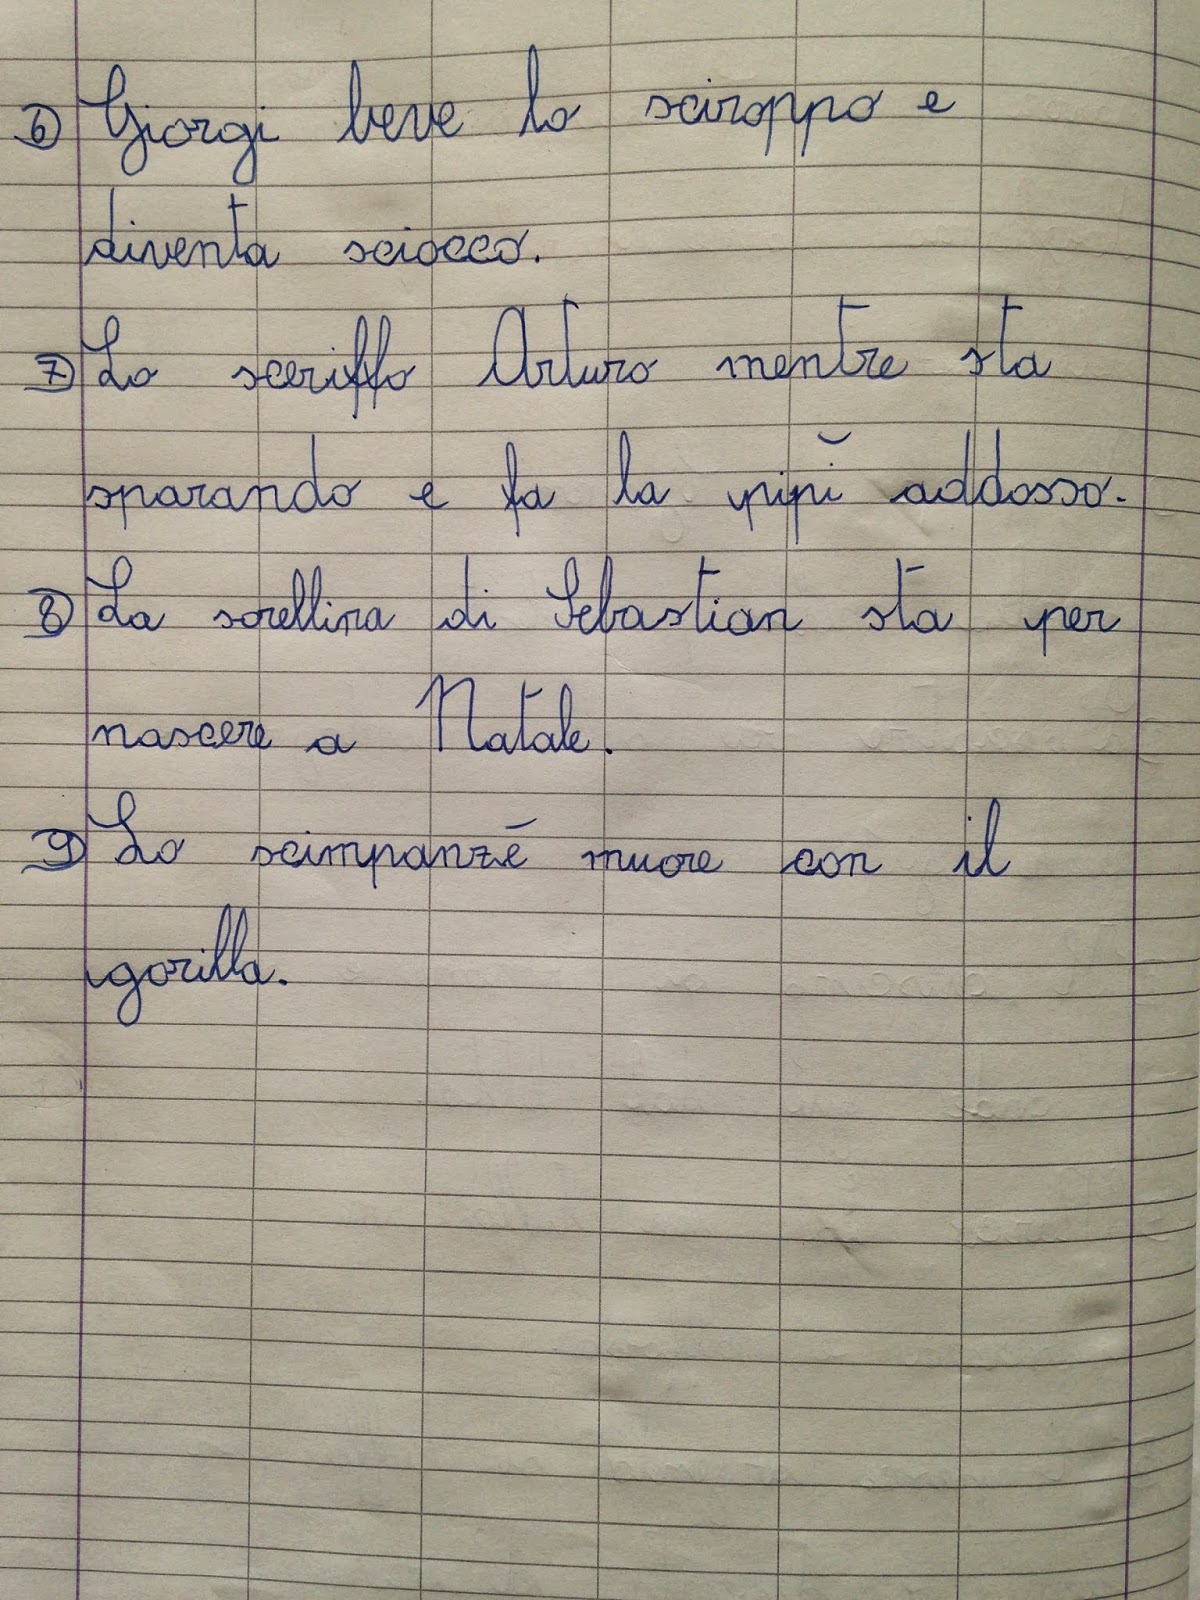 6) Giorgi beve lo sciroppo e
diventa sciocco.
7) Lo sceriffo Arturo mentre sta
sparando e fa la pipì addosso.
8) La sorellina di Sebastian sta per
nascere a Natale.
9) Lo scimpanzé muore con il
gorilla.